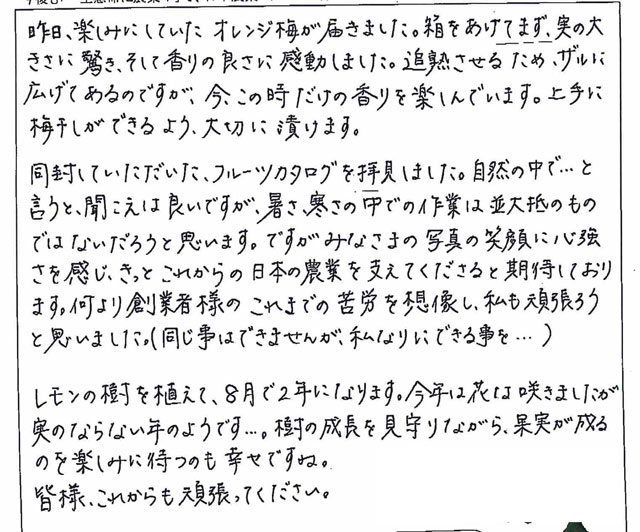 昨日、楽しみにしていた オレンジ梅が届きました。箱をあけてまず、実の大
きさに驚き、そして香りの良さに感動しました。追熟させる ため、ザルに
広げてあるのですが、今、この時だけの香りを楽しんでいます。上手に
梅干しができるよう、大切に漬けます。
同封していただいた、フルーツカタログを拝見しました。自然の中で…と
言うと、聞こえは良いですが、暑さ、寒さの中での作業は並大抵のもの
ではないだろうと思います。ですがみなさまの写真の笑顔に心強
さを感じ、きっと これからの日本の農業を支えてくださると期待しており
ます。何より創業者様の これまでの苦労を想像し、私も頑張ろう
と思いました。(同じ事はできませんが、私なりにできる事を…)
レモンの樹を植えて、8月で2年になります。今年は花は咲きましたが
実のならない年のようです…。樹の成長を見守りながら、果実が成る
のを楽しみに待つのも幸せですね。
皆様、これからも頑張ってください。